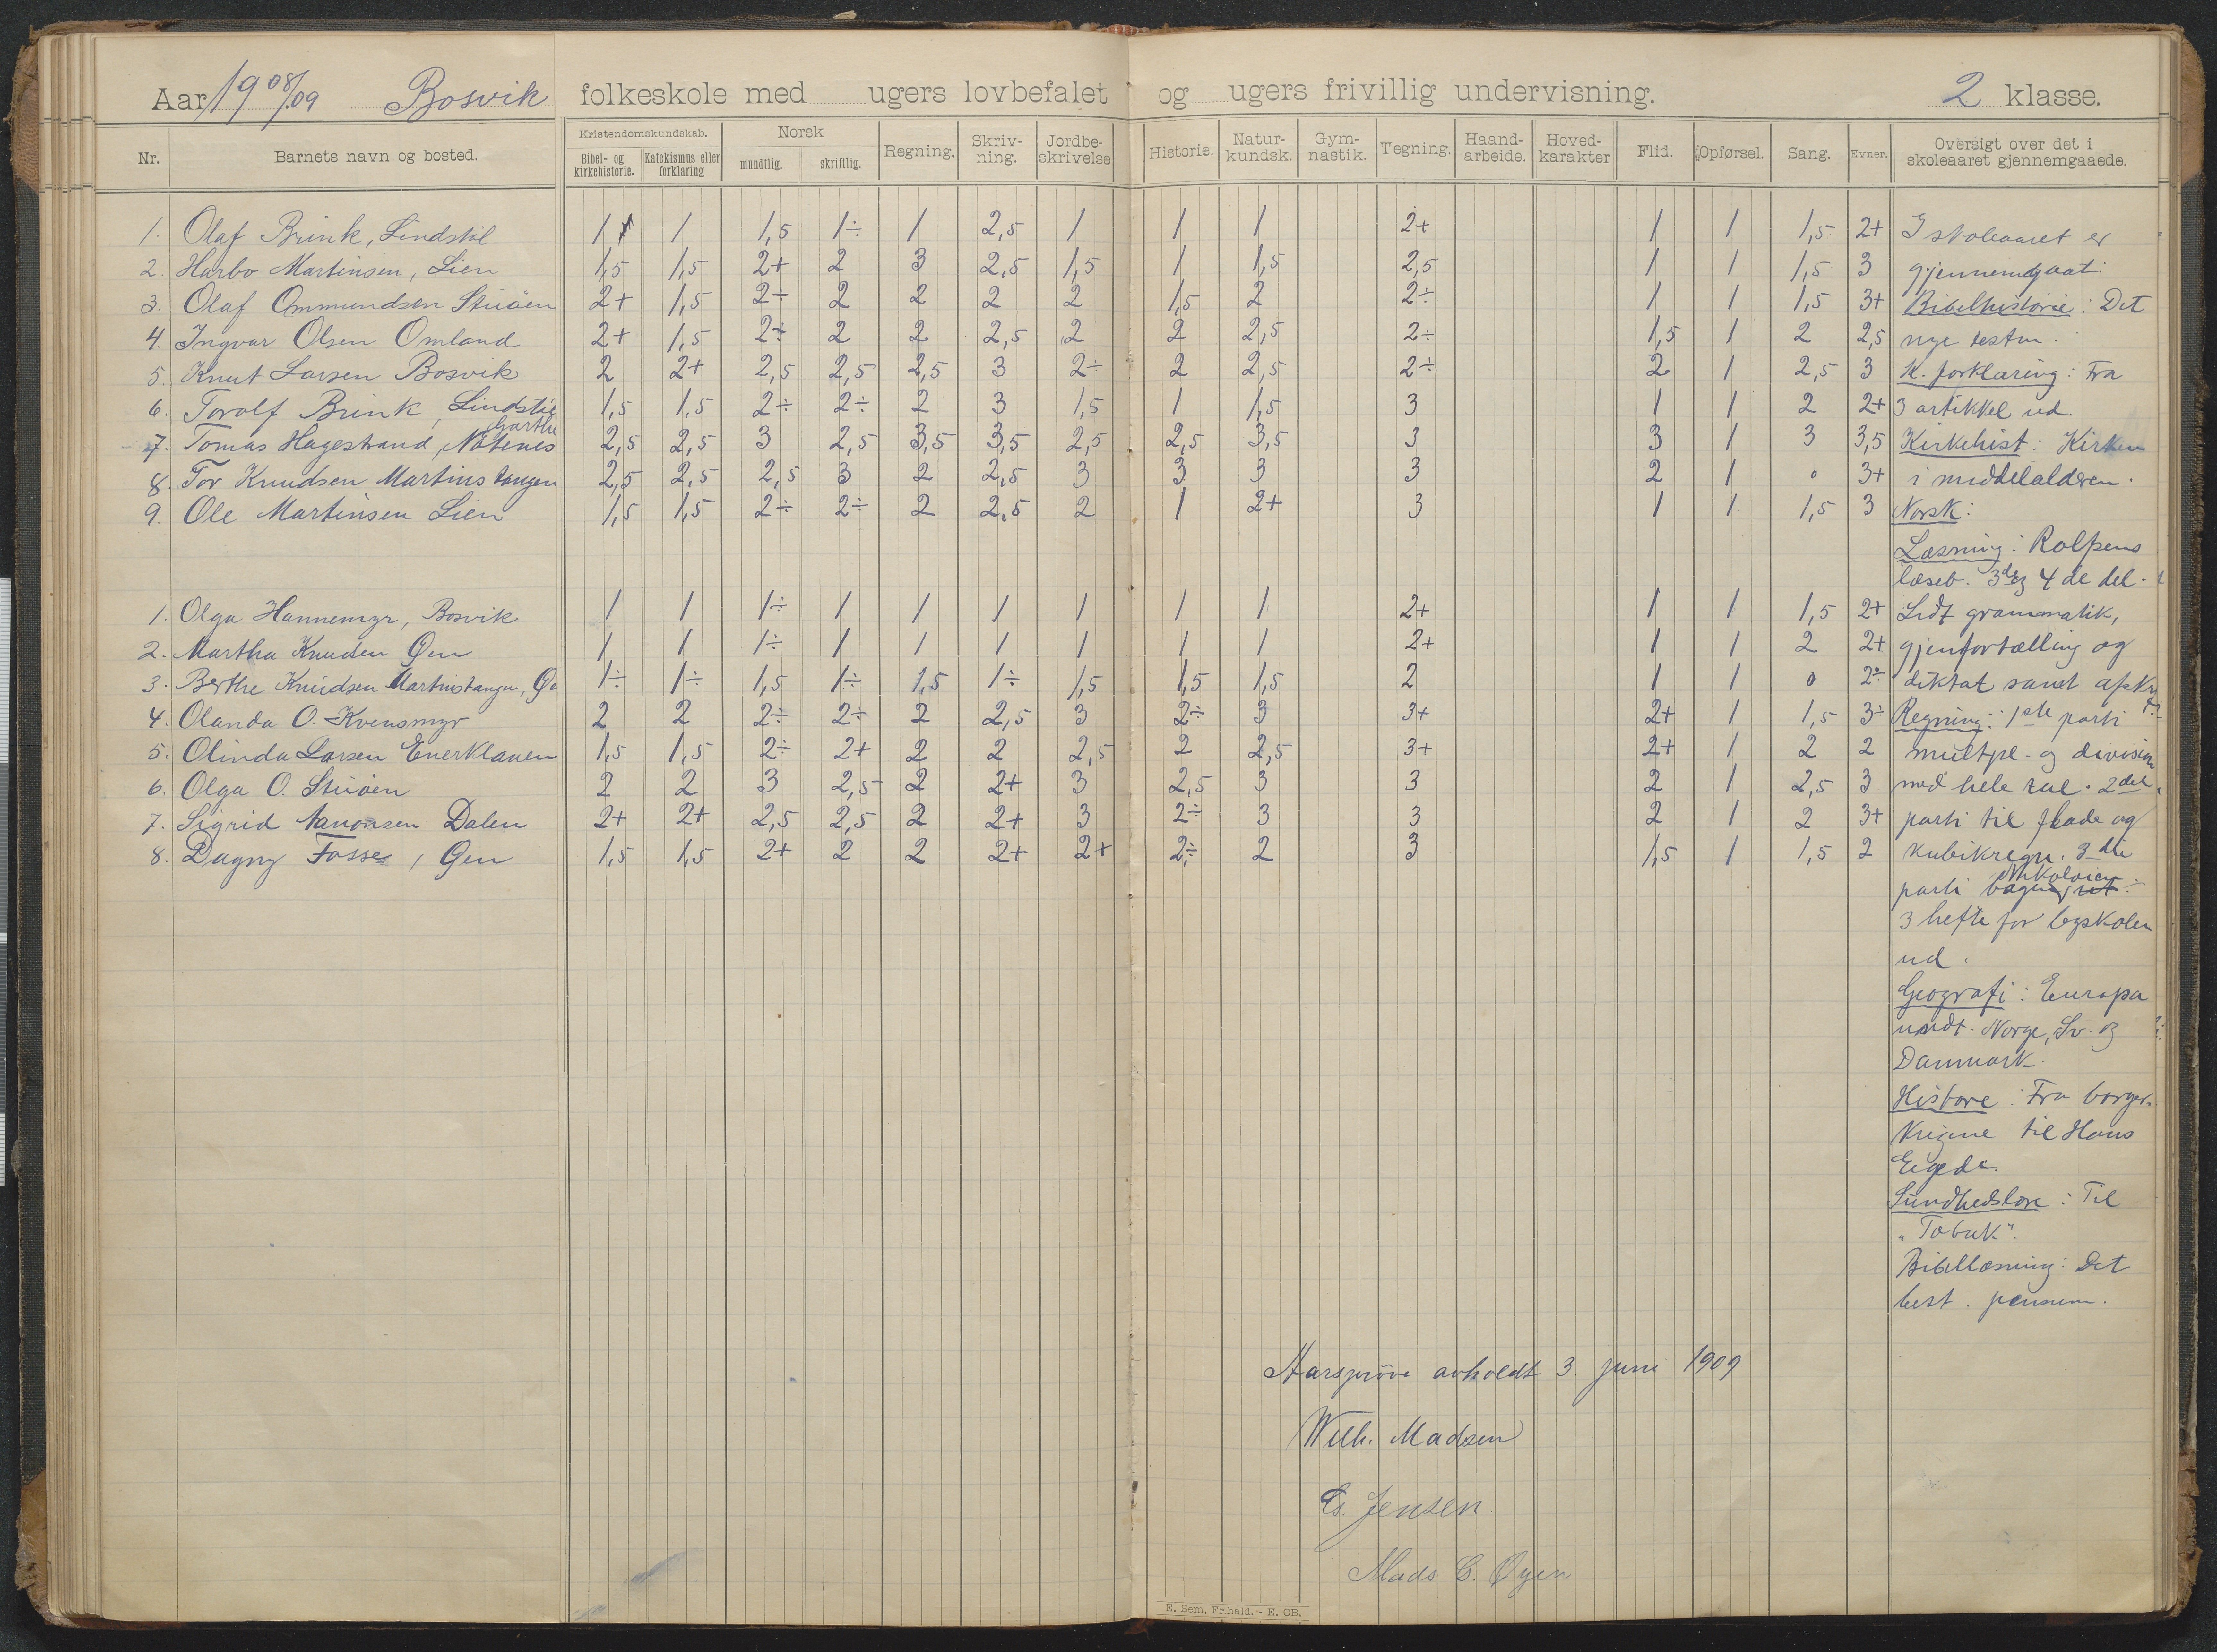 Aar 1908/09 Bosvik folkeskole med ugers lovbefalet og ugers frivillig undervisning. 2 klasse.
Nr. Barnets navn og bosted. Kristendomskundskab. Bibel- og kirkehistorie. Katekismus eller forklaring Norsk mundtlig. skriftlig. Regning. Skriv-ning. Jordbe-skrivelse Historie. Natur-kundsk. Gym-nastik. Tegning. Haand-arbeide. Hoved-karakter Flid. Opførsel. Sang. Evner. Oversigt over det i skoleaaret gjennemgaaede.
1. Olaf Brink, Lindstöl 1 1 1,5 1÷ 1 2,5 1 1 1 2+ 1 1 1,5 2+ I skoleaaret er
2. Harbo Martinsen, Lien 1,5 1,5 2+ 2 3 2,5 1,5 1 1,5 2,5 1 1 1,5 3 gjennemgaat:
3. Olaf Ommundsen Stuöen 2+ 1,5 2÷ 2 2 2 2 1,5 2 2÷ 1 1 1,5 3+ Bibelhistorie: Det
4. Ingvar Olsen Omland 2+ 1,5 2÷ 2 2 2,5 2 2 2,5 2÷ 1,5 1 2 2,5 nye testm.
5. Knut Larsen Bosvik 2 2+ 2,5 2,5 2,5 3 2÷ 2 2,5 2÷ 2 1 2,5 3 K. forklaring: Fra
6. Torolf Brink, Lindstöl 1,5 1,5 2÷ 2÷ 2 3 1,5 1 1,5 3 1 1 2 2+ 3 artikkel ud.
7. Tomas Hagestrand, 2,5 2,5 3 2,5 3,5 3,5 2,5 2,5 3,5 3 3 1 3 3,5 Kirkehist: Kirken
8. Tor Knudsen Martinstangen 2,5 2,5 2,5 3 2 2,5 3 3 3 3 2 1 0 3+ i middelalderen.
9. Ole Martinsen Lien 1,5 1,5 2÷ 2÷ 2 2,5 2 1 2+ 3 1 1 1,5 3 Norsk:
Læsning: Rolfsens
læseb. 3de og 4de del.
1. Olga Hannemyr, Bosvik 1 1 1÷ 1 1 1 1 1 1 2+ 1 1 1,5 2+ Lidt grammatik,
2. Martha Knudsen Øen 1 1 1÷ 1 1 1 1 1 1 2+ 1 1 2 2+ gjenfortælling og
3. Berthe Knudsen Martinstangen, 1÷ 1÷ 1,5 1÷ 1,5 1÷ 1,5 1,5 1,5 2 1 1 0 2÷ diktat samt afskr
4. Olanda O. Kvensmyr 2 2 2÷ 2÷ 2 2,5 3 2÷ 3 3+ 2+ 1 1,5 3÷ Regning: 1ste parti
5. Olinda Larsen Enerklauen 1,5 1,5 2÷ 2+ 2 2 2,5 2 2,5 3+ 2+ 1 2 2 multpl. og division
6. Olga O. Stuöen 2 2 3 2,5 2 2+ 3 2,5 3 3 2 1 2,5 3 med hele tal. 2det
7. Sigrid Aanonsen Dalen 2+ 2+ 2,5 2,5 2 2+ 3 2÷ 3 3 2 1 2 3+ parti til flade og
8. Dagny Fosse, Øen 1,5 1,5 2+ 2 2 2+ 2+ 2÷ 2 3 1,5 1 1,5 2 kubikregn. 3die
parti
3 hefte for byskolen
ud.
Geografi: Europa
undt. Norge, Sv. og
Danmark.
Histore: Fra borger-
krigene til Hans
Egede.
Sundhedslære: Til
„Tobak".
Bibellæsning: Det
best. pensum.
Aarsprøve avholdt 3 juni 1909
Wilh. Madsen
Es. Jensen
Mads C. Øyen
E. Sem, Fr.hald. - E. CB.